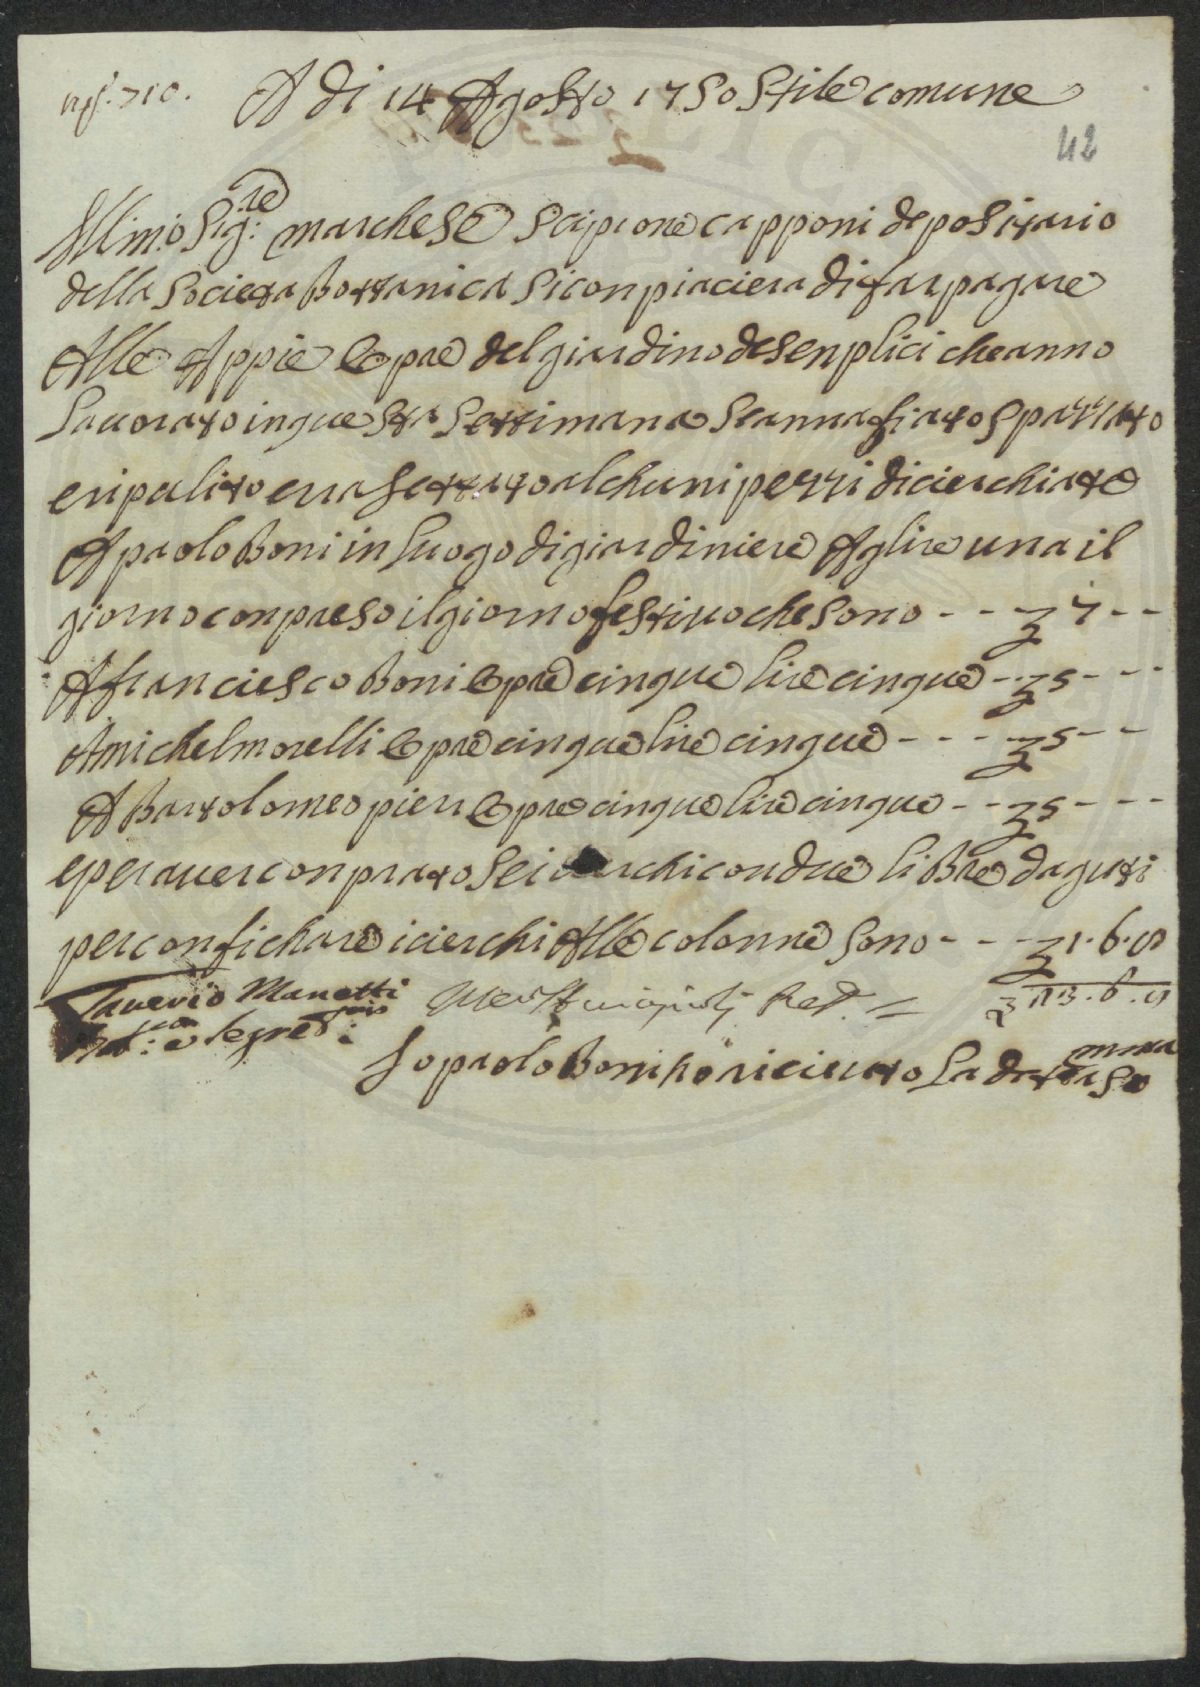 A di 14 Agosto 1750 Stile comune
42
Illmo Sigre marchese Scipione capponi depositario
della Societa Bottanica Si conpiaciera di far pagare
Alle Appie Opre del giardino de senplici che anno
Lavorato in questa Settimana Se annafiato spazzato
e ripulito e rasettato alchuni pezzi di cierchiate
A paolo Boni in luogo di giardiniere A lire una il
giorno conpreso il giorno festivo che sono - - - 7 - -
A franciesco Boni Opre cinque lire cinque - - 5 - - -
A michel morelli Opre cinque lire cinque - - - - 5 - -
A Bartolomeo pieri Opre cinque lire cinque - - 5 - - -
e per aver conprato Sei cierchi con due libre daguti
per confichare i cierchi Alle colonne sono - - - 1.6.8
Saverio Manetti
23.6.8
Io paolo Boni ho riceuto La detta soma